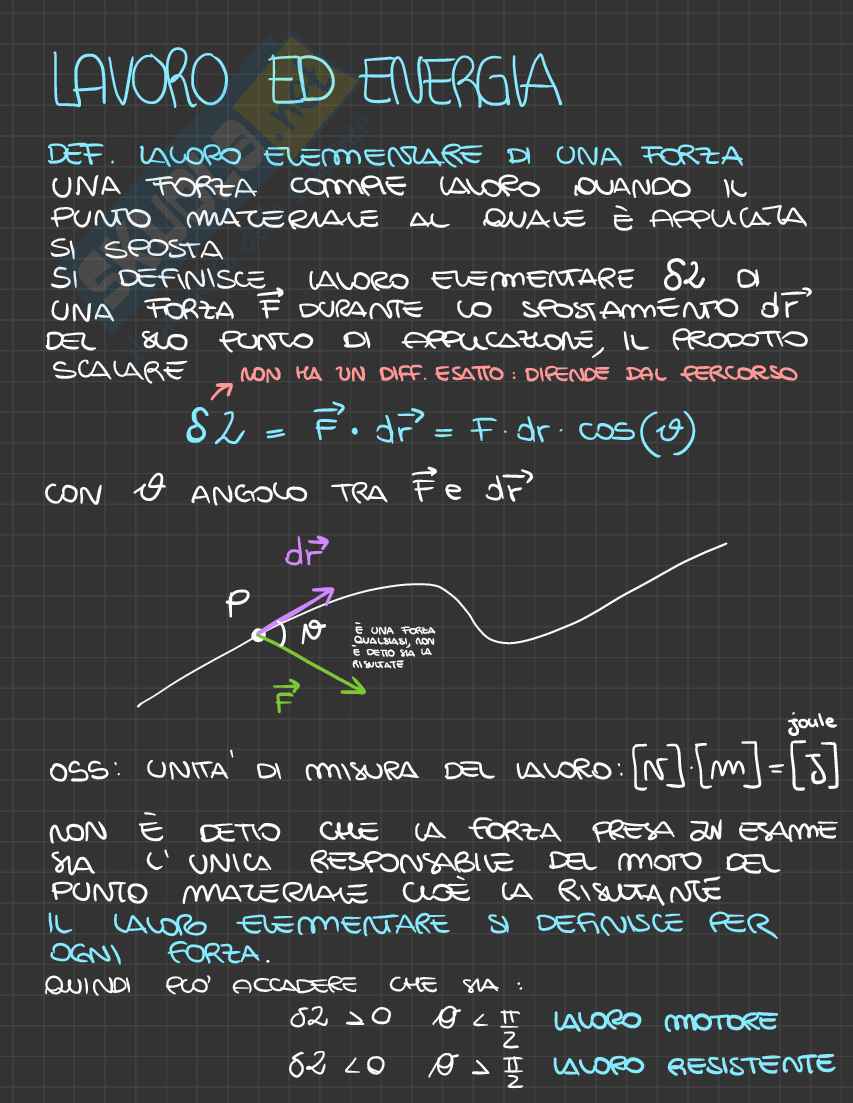 LAVORO ED ENERGIA
DEF. LAVORO ELEMENTARE DI UNA FORZA
UNA FORZA COMPIE LAVORO QUANDO IL
PUNTO MATERIALE AL QUALE È APPLICATA
SI SPOSTA
SI DEFINISCE LAVORO ELEMENTARE δL DI
UNA FORZA F⃗ DURANTE LO SPOSTAMENTO dr⃗
DEL SUO PUNTO DI APPLICAZIONE, IL PRODOTTO
SCALARE
NON HA UN DIFF. ESATTO: DIPENDE DAL PERCORSO
δL = F⃗ · dr⃗ = F · dr · cos(ϑ)
CON ϑ ANGOLO TRA F⃗ e dr⃗
dr⃗
P
ϑ
È UNA FORZA
QUALSIASI, NON
È DETTO SIA LA
RISULTATE
F⃗
joule
OSS: UNITA' DI MISURA DEL LAVORO: [N]·[m] = [J]
NON È DETTO CHE LA FORZA PRESA IN ESAME
SIA L'UNICA RESPONSABILE DEL MOTO DEL
PUNTO MATERIALE CIOÈ LA RISULTANTE
IL LAVORO ELEMENTARE SI DEFINISCE PER
OGNI FORZA.
QUINDI PUO' ACCADERE CHE SIA:
δL > 0 ϑ < π/2 LAVORO MOTORE
δL < 0 ϑ > π/2 LAVORO RESISTENTE